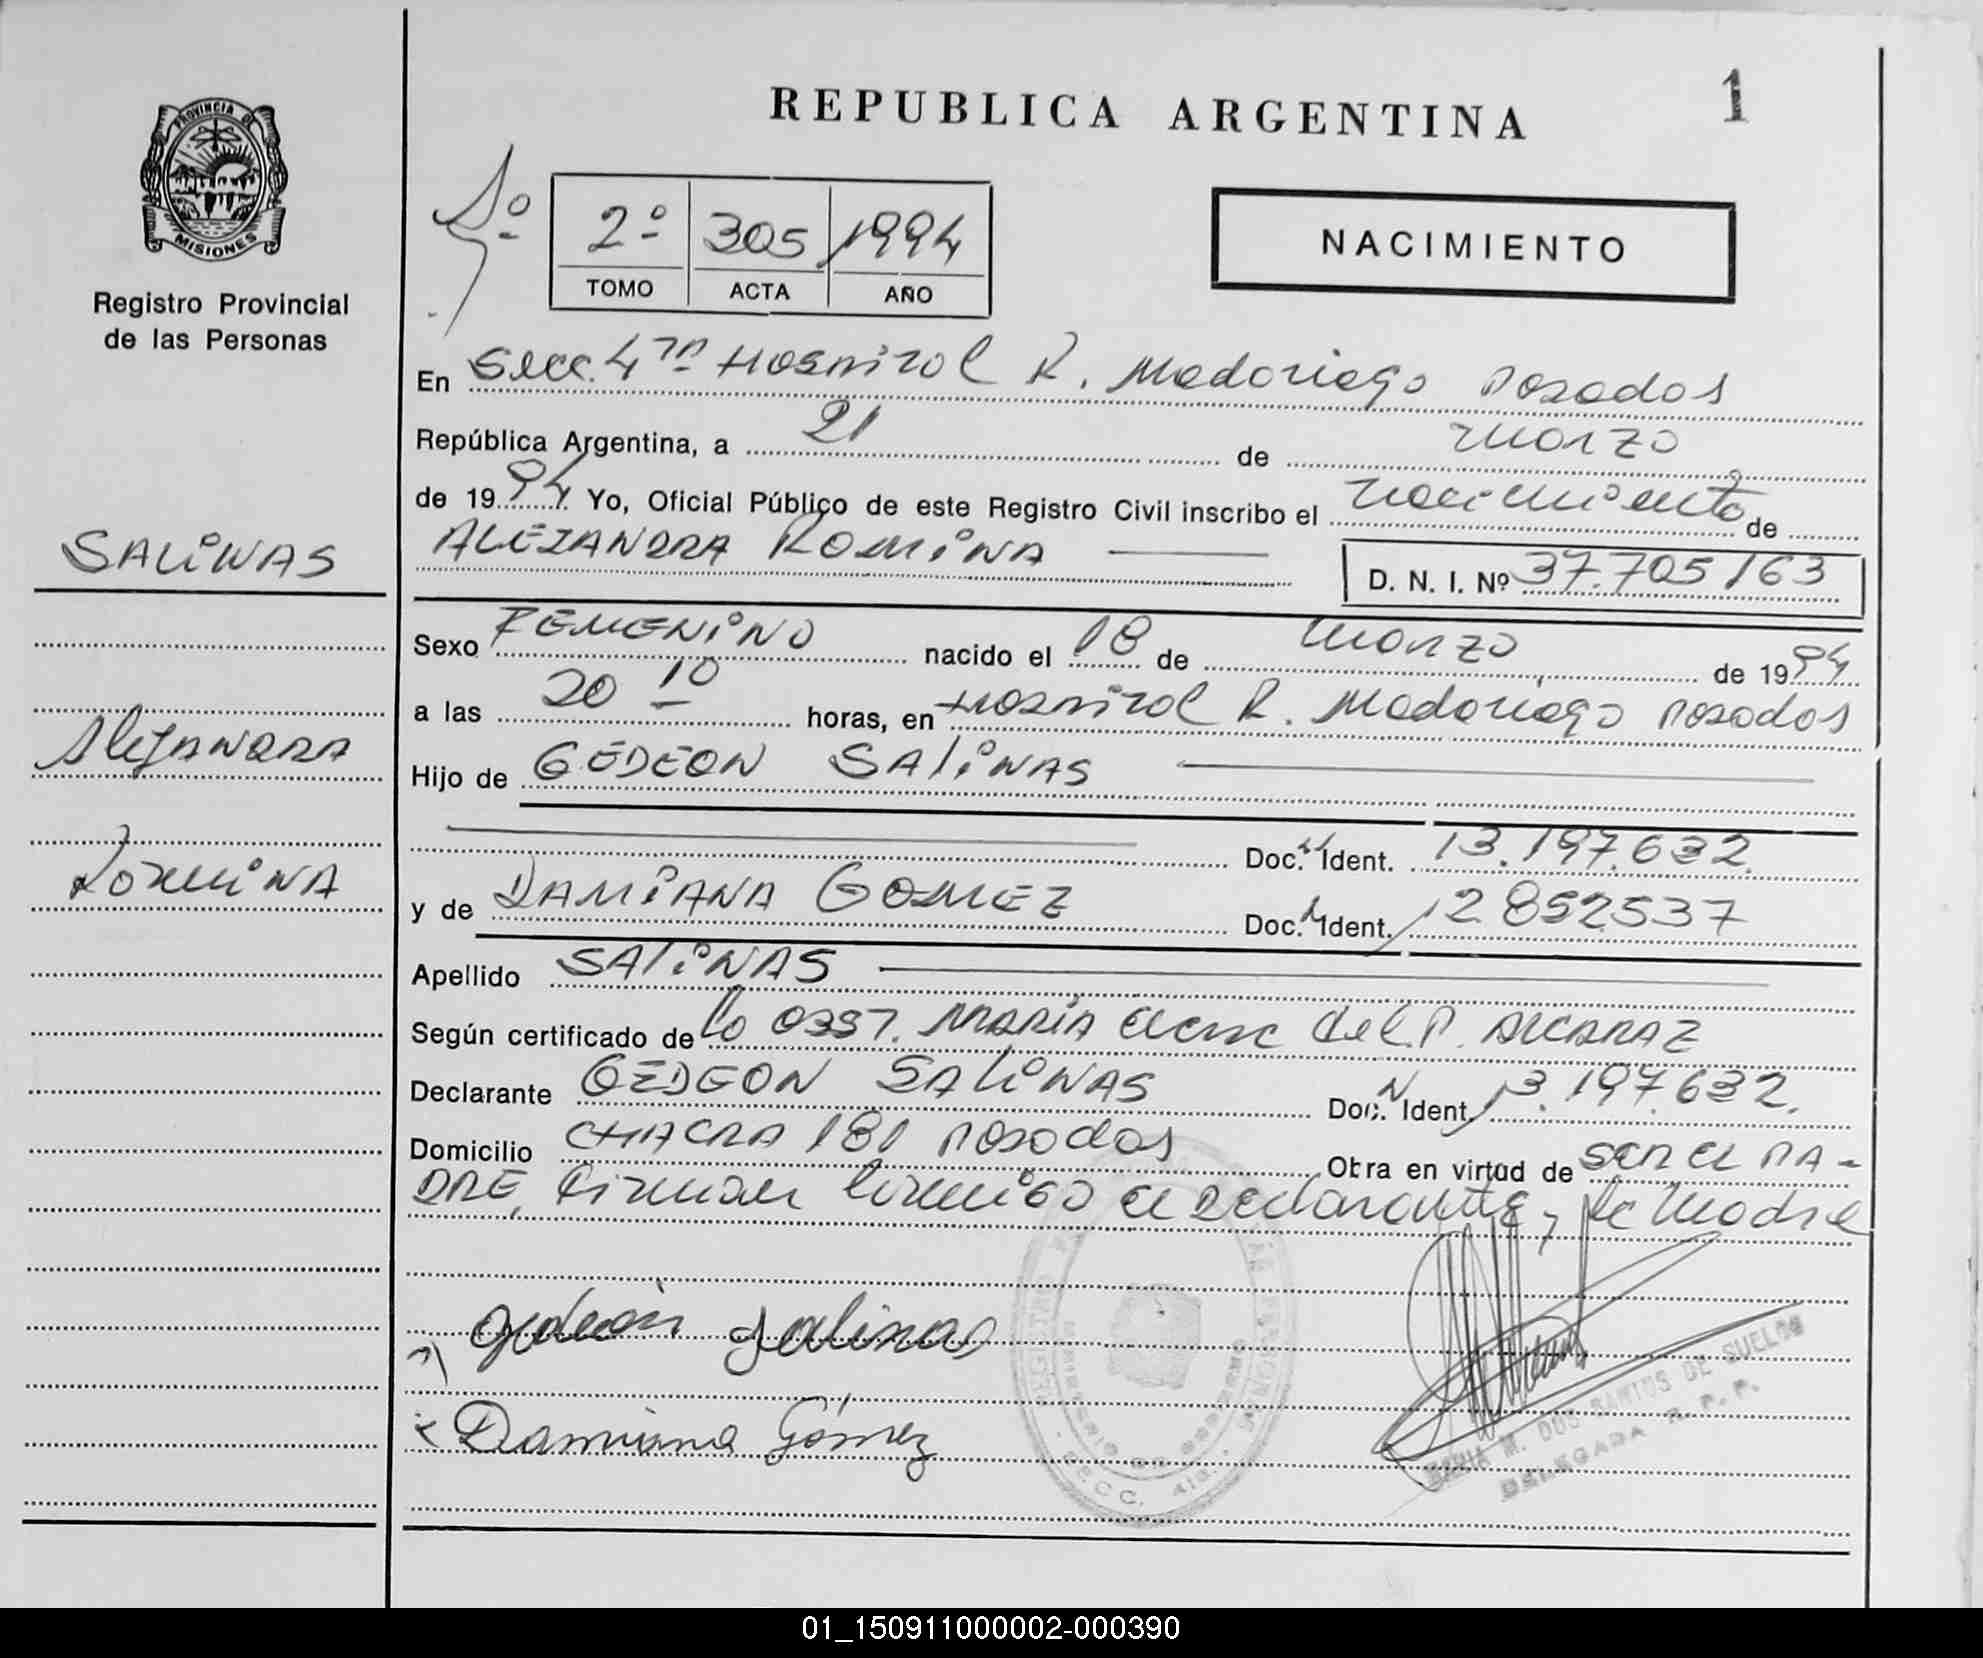 REPUBLICA ARGENTINA
1
PROVINCIA DE
MISIONES
Registro Provincial
de las Personas
2º 305 1994
TOMO ACTA AÑO
NACIMIENTO
En Secc. 4ta Hospital R. Madariaga Posadas
República Argentina, a 21 de marzo
de 1994 Yo, Oficial Público de este Registro Civil inscribo el nacimiento de
ALEJANDRA ROMINA
D. N. I. Nº 37.705163
SALINAS
Alejandra
Romina
Sexo FEMENINO nacido el 18 de marzo de 1994
a las 20 10 horas, en Hospital R. Madariaga Posadas
Hijo de GEDEON SALINAS
Doc. N Ident. 13.197.632.
y de DAMIANA GOMEZ Doc. N Ident. 12852537
Apellido SALINAS
Según certificado de la Obst. MARIA Elena del P. ALCARAZ
Declarante GEDEON SALINAS Doc. N Ident. 13.197.632.
Domicilio CHACRA 181 Posadas Obra en virtud de SER EL PA-
DRE, Firman conmigo el Declarante y la Madre
Gedeón Salinas
Damiana Gómez
M. DOS SANTOS DE SUELOS
DELEGADA R. P. P.
SECC. 4ta.
01_150911000002-000390